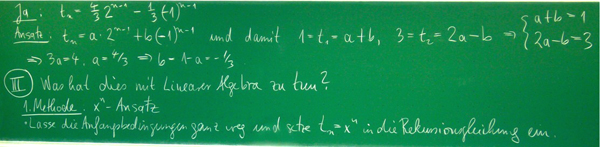 Ja: t_n = 4/3 2^{n-1} - 1/3 (-1)^{n-1}
Ansatz: t_n = a·2^{n-1} + b(-1)^{n-1} und damit 1 = t_1 = a+b, 3 = t_2 = 2a-b ⇒ { a+b=1
2a-b=3
⇒ 3a=4, a=4/3 ⇒ b=1-a=-1/3
III Was hat dies mit Linearer Algebra zu tun?
1. Methode: x^n-Ansatz
• Lasse die Anfangsbedingungen ganz weg und setze t_n = x^n in die Rekursionsgleichung ein.